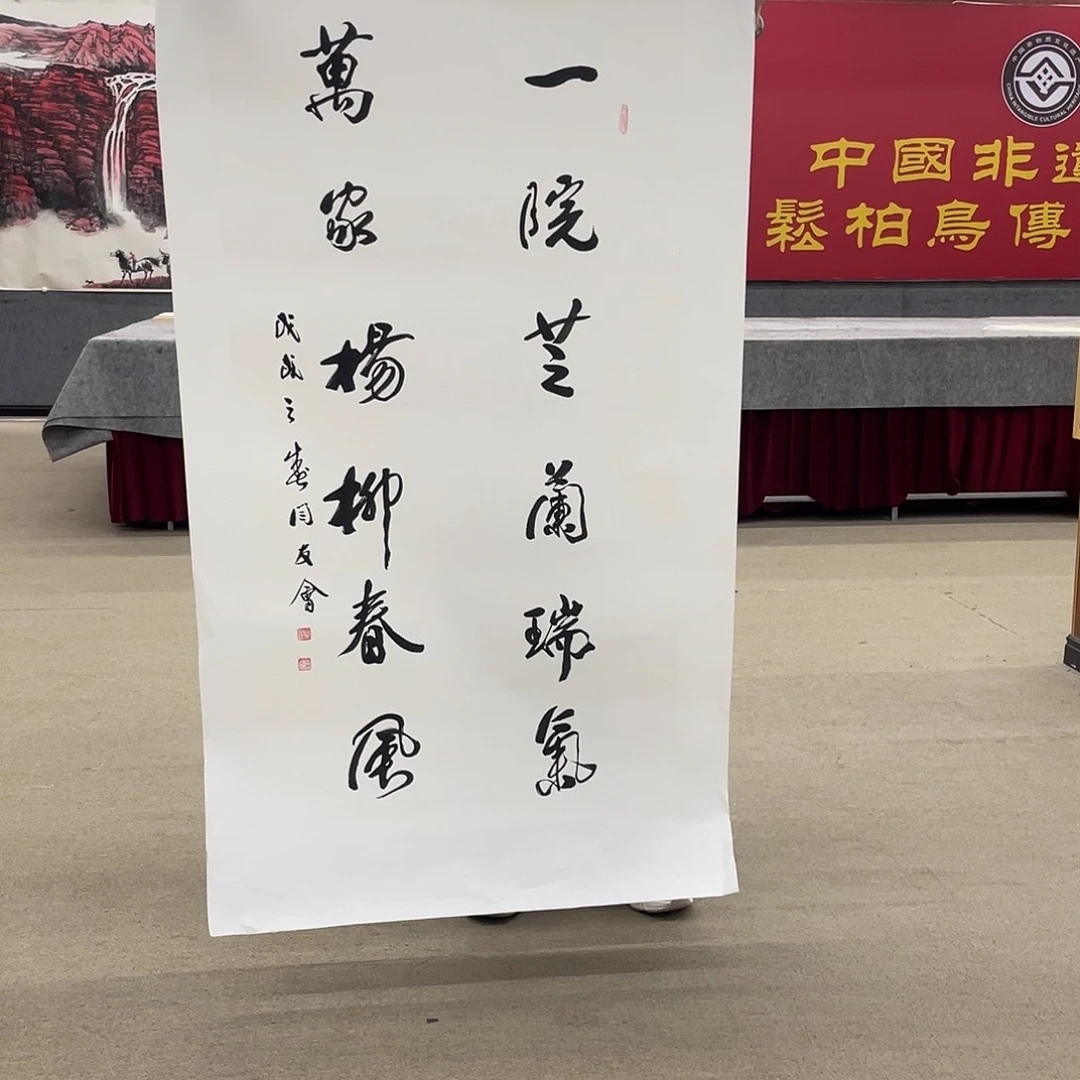 一院芝蘭瑞氣
萬家楊柳春風
戊戌之春周友會
中國非遺
鬆柏鳥傳
CHINA INTANGIBLE CULTURAL HERITAGE